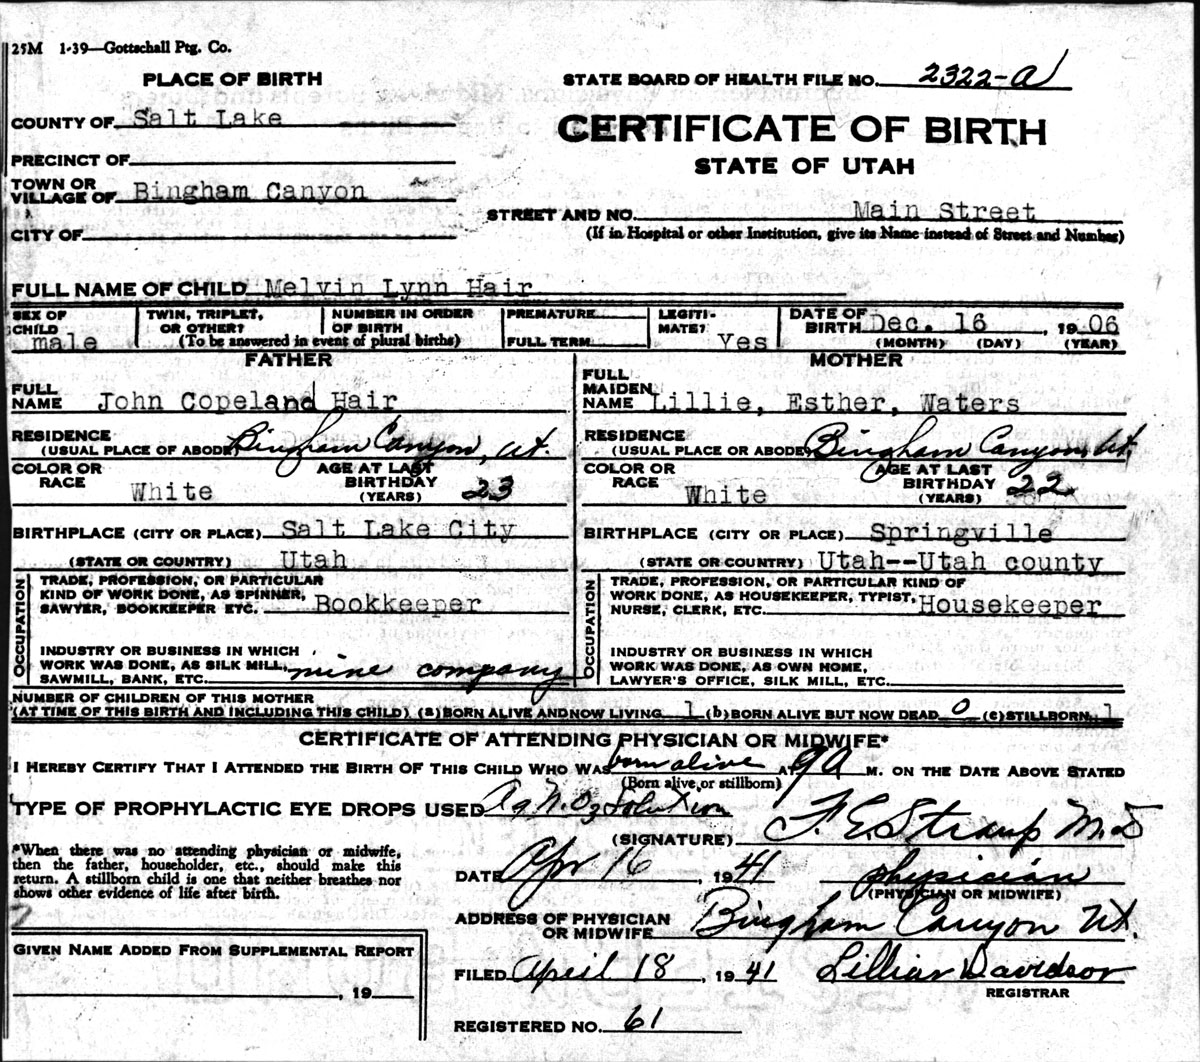 25M 1-39—Gottschall Ptg. Co.
PLACE OF BIRTH
STATE BOARD OF HEALTH FILE NO. 2322-a
COUNTY OF Salt Lake
CERTIFICATE OF BIRTH
PRECINCT OF
STATE OF UTAH
TOWN OR VILLAGE OF Bingham Canyon
STREET AND NO. Main Street
(If in Hospital or other Institution, give its Name instead of Street and Number)
CITY OF
FULL NAME OF CHILD Melvin Lynn Hair
SEX OF CHILD male
TWIN, TRIPLET, OR OTHER?
NUMBER IN ORDER OF BIRTH
(To be answered in event of plural births)
PREMATURE
FULL TERM
LEGITIMATE? Yes
DATE OF BIRTH Dec. 16, 1906
(MONTH) (DAY) (YEAR)
FATHER
FULL NAME John Copeland Hair
RESIDENCE (USUAL PLACE OF ABODE) Bingham Canyon, Ut.
COLOR OR RACE White
AGE AT LAST BIRTHDAY (YEARS) 23
BIRTHPLACE (CITY OR PLACE) Salt Lake City
(STATE OR COUNTRY) Utah
OCCUPATION
TRADE, PROFESSION, OR PARTICULAR
KIND OF WORK DONE, AS SPINNER,
SAWYER, BOOKKEEPER ETC. Bookkeeper
INDUSTRY OR BUSINESS IN WHICH
WORK WAS DONE, AS SILK MILL,
SAWMILL, BANK, ETC. mine company
MOTHER
FULL MAIDEN NAME Lillie, Esther, Waters
RESIDENCE (USUAL PLACE OR ABODE) Bingham Canyon, Ut.
COLOR OR RACE White
AGE AT LAST BIRTHDAY (YEARS) 22
BIRTHPLACE (CITY OR PLACE) Springville
(STATE OR COUNTRY) Utah--Utah county
OCCUPATION
TRADE, PROFESSION, OR PARTICULAR KIND OF
WORK DONE, AS HOUSEKEEPER, TYPIST,
NURSE, CLERK, ETC. Housekeeper
INDUSTRY OR BUSINESS IN WHICH
WORK WAS DONE, AS OWN HOME,
LAWYER'S OFFICE, SILK MILL, ETC.
NUMBER OF CHILDREN OF THIS MOTHER
(AT TIME OF THIS BIRTH AND INCLUDING THIS CHILD) (a) BORN ALIVE AND NOW LIVING 1 (b) BORN ALIVE BUT NOW DEAD 0 (c) STILLBORN 1
CERTIFICATE OF ATTENDING PHYSICIAN OR MIDWIFE*
I HEREBY CERTIFY THAT I ATTENDED THE BIRTH OF THIS CHILD WHO WAS born alive AT 9 a M. ON THE DATE ABOVE STATED
(Born alive or stillborn)
TYPE OF PROPHYLACTIC EYE DROPS USED Ag N.O3 Solution
(SIGNATURE) F. E. Straup M.D
*When there was no attending physician or midwife,
then the father, householder, etc., should make this
return. A stillborn child is one that neither breathes nor
shows other evidence of life after birth.
DATE Apr 16, 1941 physician
(PHYSICIAN OR MIDWIFE)
ADDRESS OF PHYSICIAN OR MIDWIFE Bingham Canyon Ut.
GIVEN NAME ADDED FROM SUPPLEMENTAL REPORT
, 19
FILED April 18, 1941 Lillian Davidson
REGISTRAR
REGISTERED NO. 61